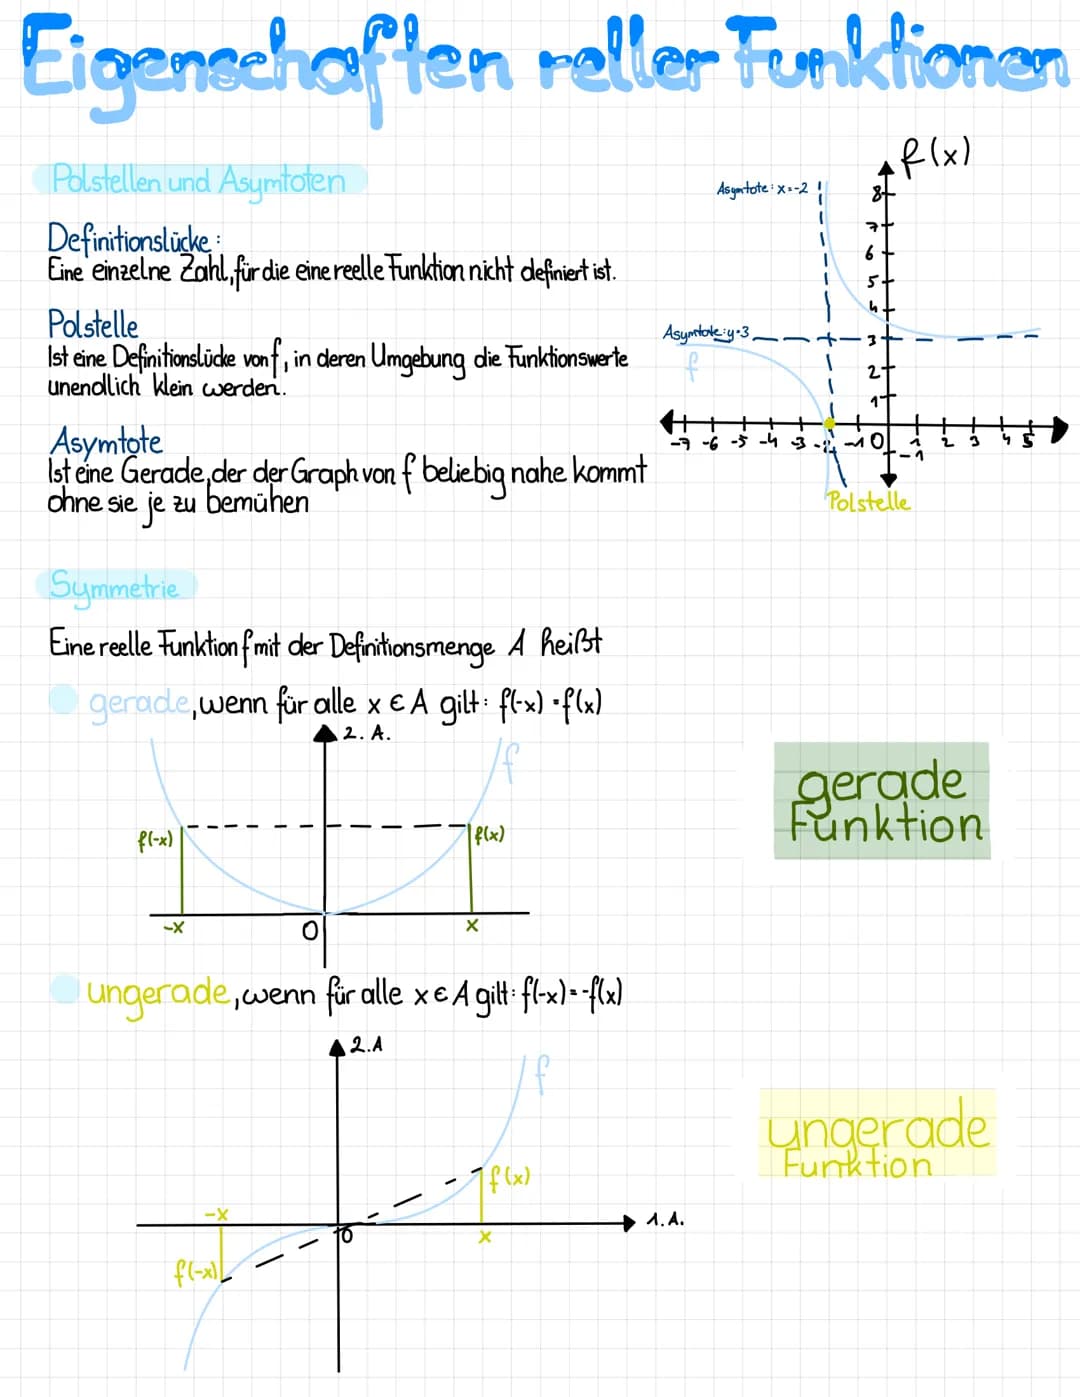 Eigenschaften reller Funktionen
f(x)
Polstellen und Asymtoten
Asymtote: x=-2
8
7
6
5
4
3
2
1
Definitionslücke:
Eine einzelne Zahl, für die eine reelle Funktion nicht definiert ist.
Polstelle
Ist eine Definitionslücke von f, in deren Umgebung die Funktionswerte
unendlich klein werden.
Asymtote: y=3
f
-7 -6 -5 -4 -3 -2 -1 0 1 2 3 4 5
-1
Polstelle
Asymtote
Ist eine Gerade, der der Graph von f beliebig nahe kommt
ohne sie je zu bemühen
Symmetrie
Eine reelle Funktion f mit der Definitionsmenge A heißt
gerade, wenn für alle x ∈ A gilt: f(-x) = f(x)
2. A.
f
f(-x)
f(x)
-x
0
x
gerade
Funktion
ungerade, wenn für alle x ∈ A gilt: f(-x) = -f(x)
2.A
f
f(x)
-x
1.A.
0
x
f(-x)
ungerade
Funktion